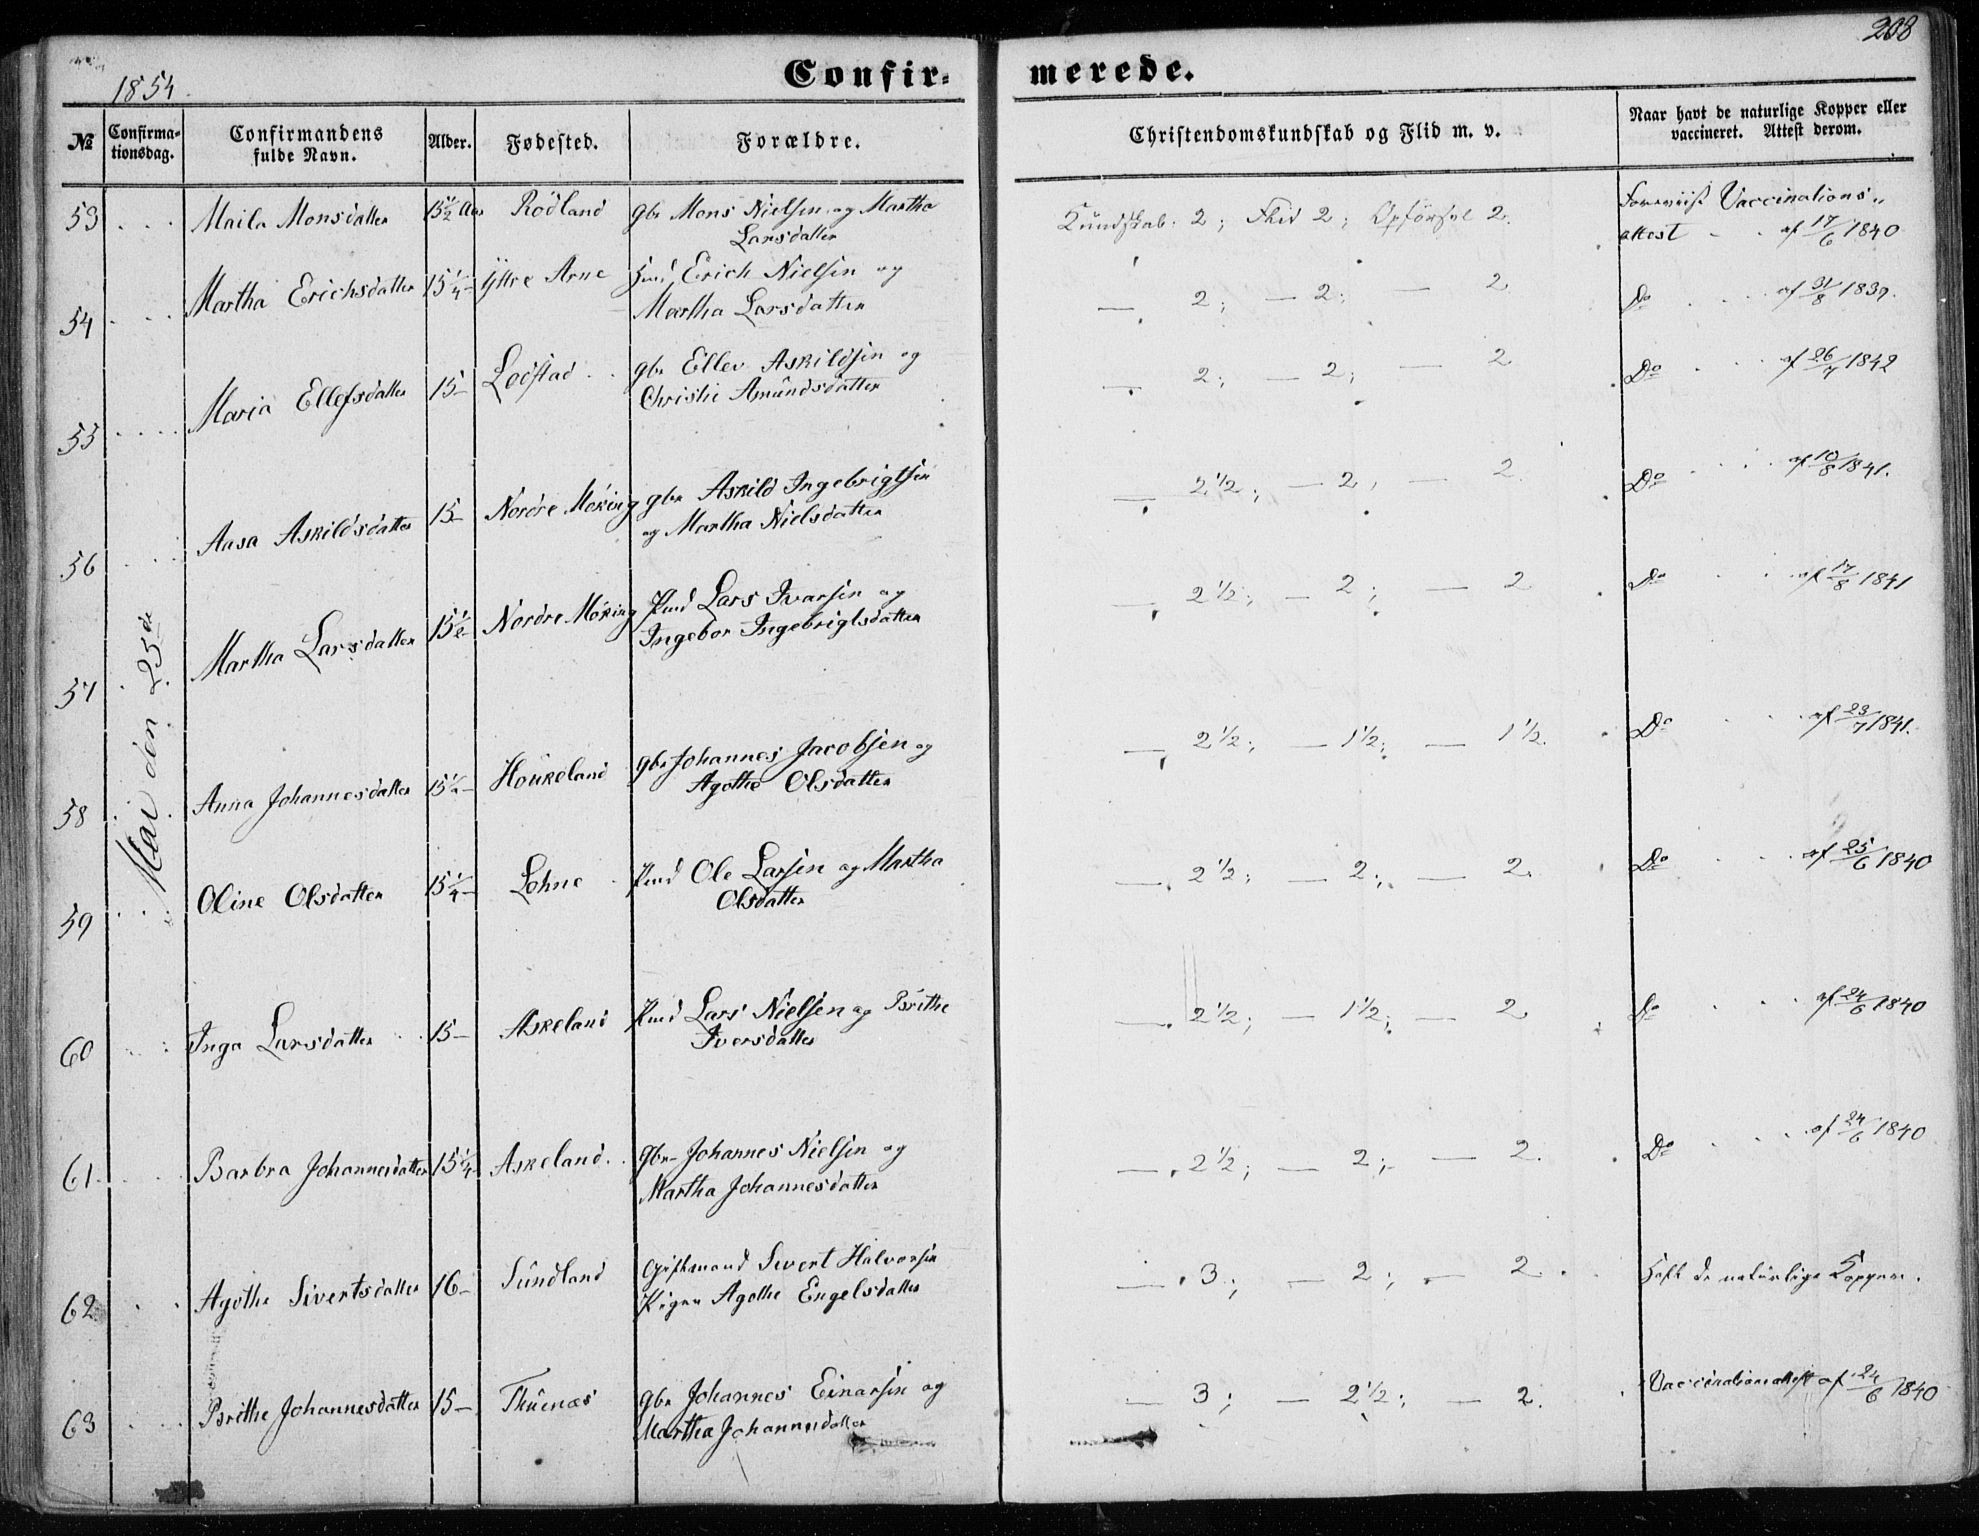 208
1854.
Confir= merede.
№ Confirma= tionsdag. Confirmandens fulde Navn. Alder. Fødested. Forældre. Christendomskundskab og Flid m. v. Naar havt de naturlige Kopper eller vaccineret. Attest derom.
Mai den 25de
53 Maila Monsdatter 15½ Aar Rödland gbr Mons Nielsen og Martha Kundskab: 2; Flid 2; Opförsel 2. Foreviist Vaccinations„
Larsdatter attest af 17/6 1840
54 Martha Erichsdatter 15¼ Yttre Arne Huusmd Erich Nielsen og — 2; — 2; — 2 Do af 31/8 1839.
Martha Larsdatter
55 Maria Ellefsdatter 15 Lodstad gbr Ellev Askildsen og — 2; — 2; — 2 Do af 26/7 1842
Christie Amundsdatter
56 Aasa Askildsdatter 15 Nordre Möking gbr Askild Ingebrigtsen — 2½; — 2, — 2. Do af 10/8 1841.
og Martha Nielsdatter
57 Martha Larsdatter 15½ Nordre Möking Pmd Lars Ivarsen og — 2½; — 2; — 2 Do af 17/8 1841
Ingebor Ingebrigtsdatter
58 Anna Johannesdatter 15½ Houkeland gbr Johannes Jacobsen og — 2½; — 1½; — 1½. Do af 23/7 1841.
Agothe Olsdatter
59 Oline Olsdatter 15¼ Lohne Pmd Ole Larsen og Martha — 2½; — 2; — 2. Do af 25/6 1840
Olsdatter
60 Inga Larsdatter 15 Askeland Pmd Lars Nielsen og Brithe — 2½; — 1½; — 2 Do af 24/6 1840
Iversdatter
61 Barbra Johannesdatter 15¼ Askeland. gbr Johannes Nielsen og — 2½; — 2; — 2. Do af 24/6 1840
Martha Johannesdatter
62 Agothe Sivertsdatter 16 Sundland Giftmand Sivert Halvorsen — 3; — 2; — 2. Haft de naturlige Kopper.
Pigen Agothe Engelsdatter
63 Brithe Johannesdatter 15 Thuenæs gbr Johannes Einarsen og — 3; — 2½; — 2. Vaccinationsattest af 24/6 1840
Martha Johannesdatter